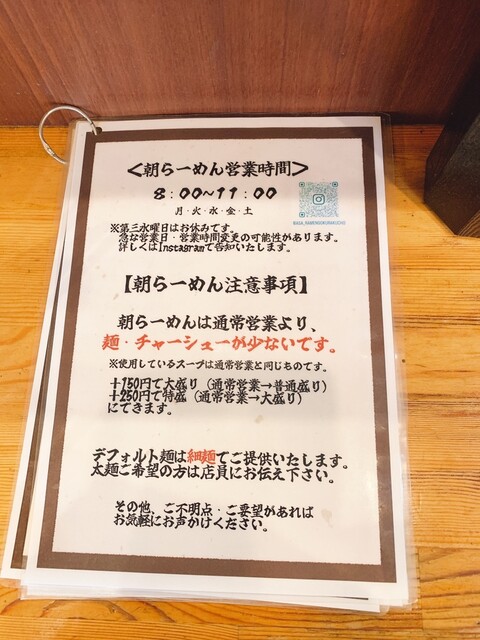 <朝らーめん営業時間>
8:00~11:00
月・火・水・金・土
※第三水曜日はお休みです。
急な営業日・営業時間変更の可能性があります。
詳しくはInstagramで告知いたします。
【朝らーめん注意事項】
朝らーめんは通常営業より、
麺・チャーシューが少ないです。
※使用しているスープは通常営業と同じものです。
+150円で大盛り(通常営業→普通盛り)
+250円で特盛(通常営業→大盛り)
にできます。
デフォルト麺は細麺でご提供いたします。
太麺ご希望の方は店員にお伝え下さい。
その他、ご不明点・ご要望があれば
お気軽にお声かけください。